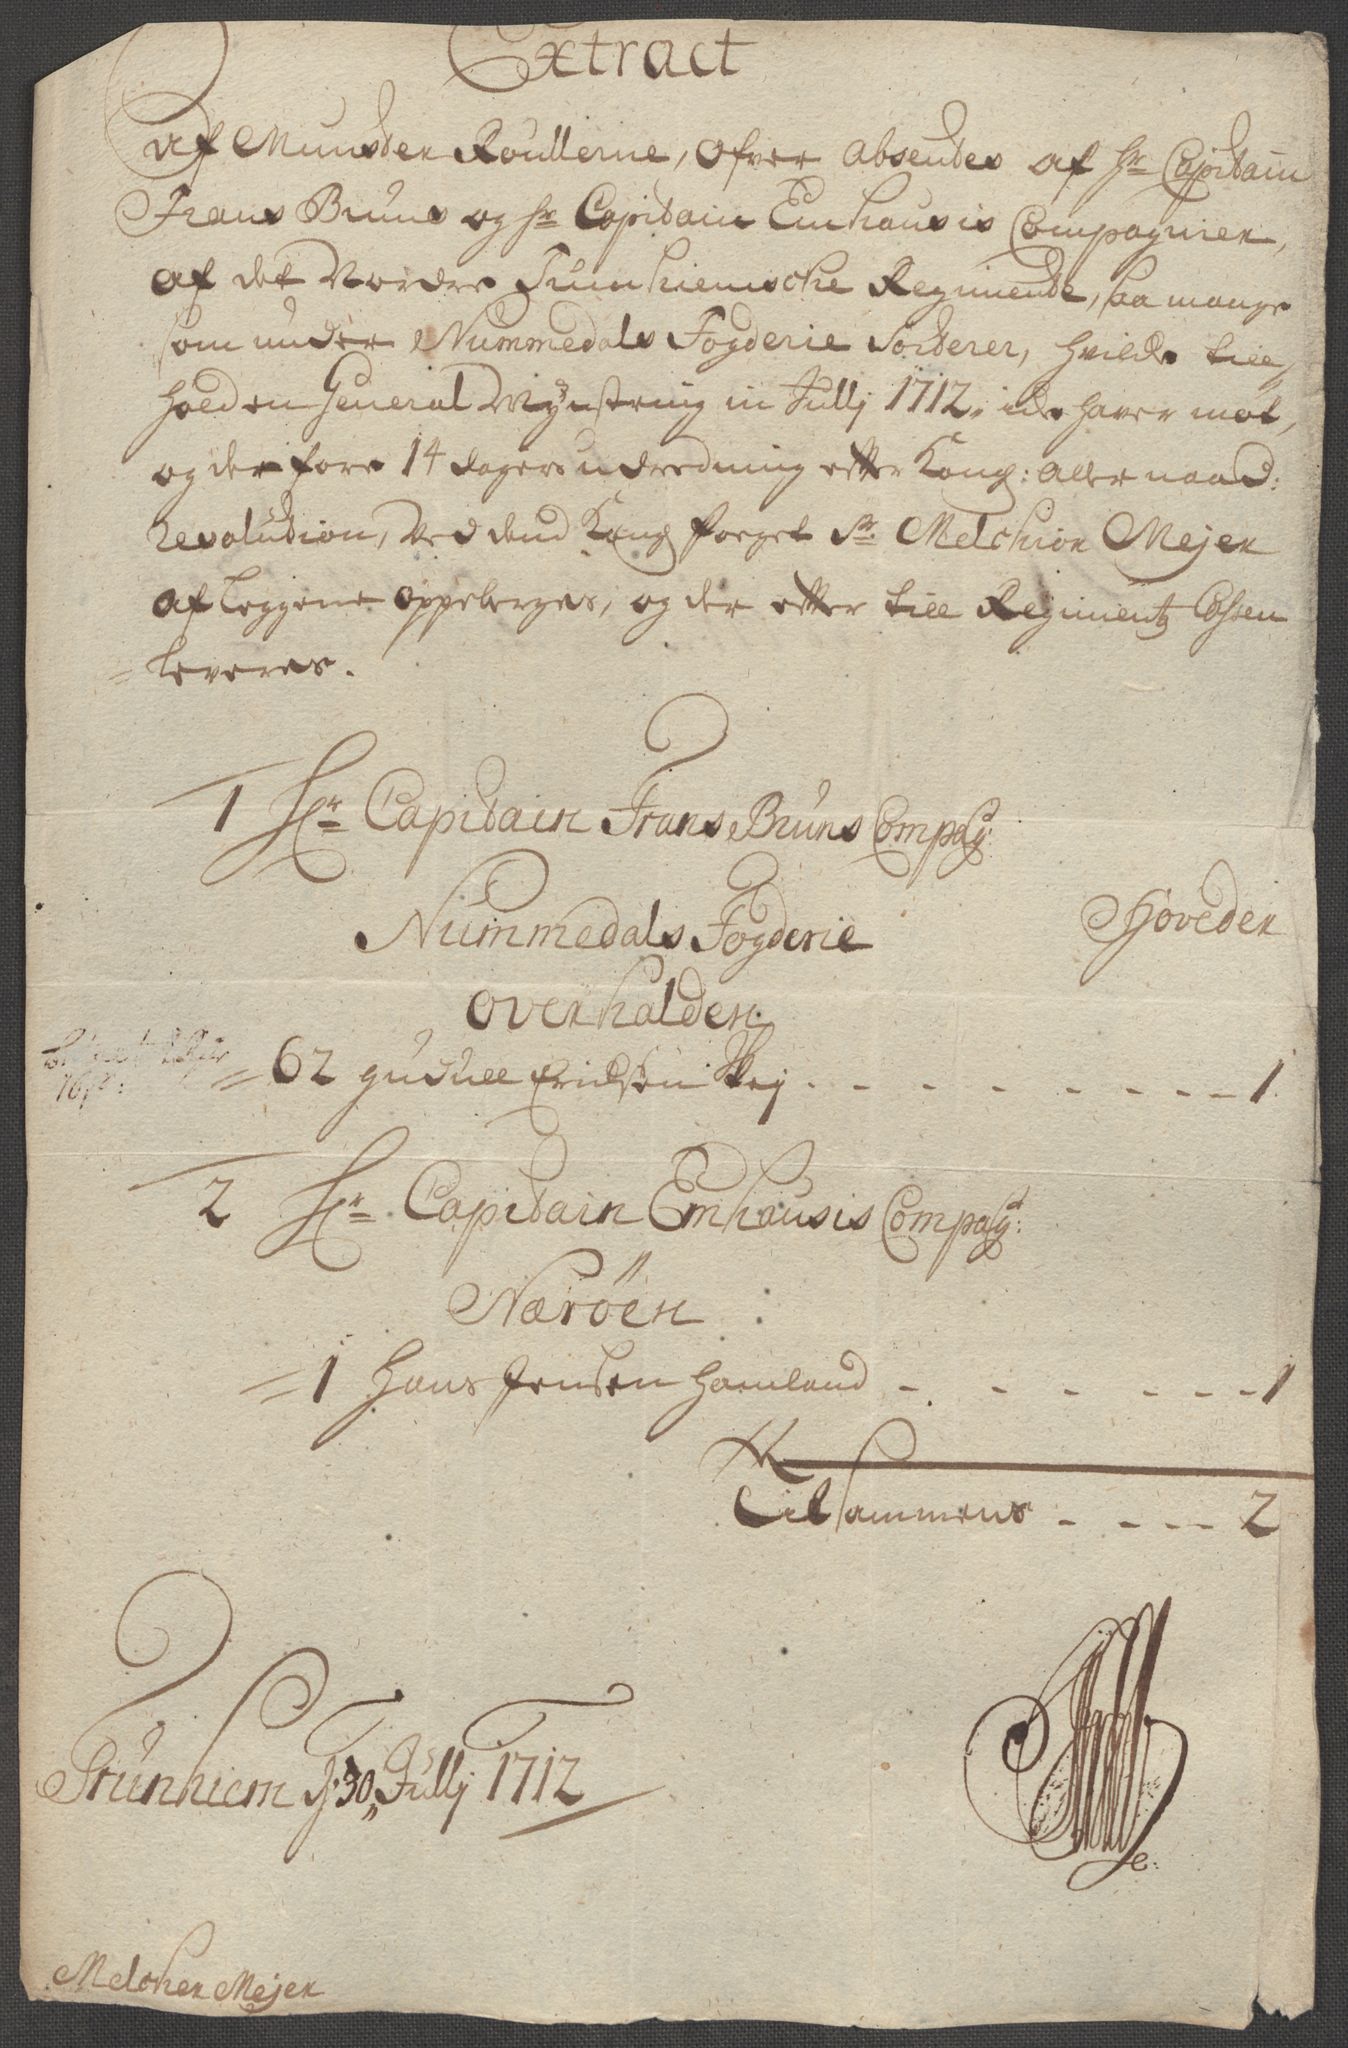 Extract
Af Munster Roullerne, ofver absentes af Hr Capitain
Frans Bruns og Hr Capitain Emhausis Compagnier,
af det Nordre Trunhiemsche Regimente, saa mange
som under Nummedals Fogderie Sorterer, hvilde till
holden General Mynstring in Julij 1712. iche haver mødt,
og der fore 14 dagers udredning efter Kong: aller naad:
resolution, ved dend Kongl foeget Sr. Melchior Mejer
af leggene oppeberges, og der efter till Regimentz Cassen
leveres.
1 Hr Capitain Frans Bruns Compag:
Nummedals Fogderie
Hoveder
Overhalden
62 gudull Erichsen Skej - - - - - - - - 1
2 Hr Capitain Emhausis Compag:
Nærøen
1 Hans Jensen Hamland - - - - - - 1
Tilsammens - - - - 2
Trunhiem d: 30 Julij 1712
Melcher Mejer